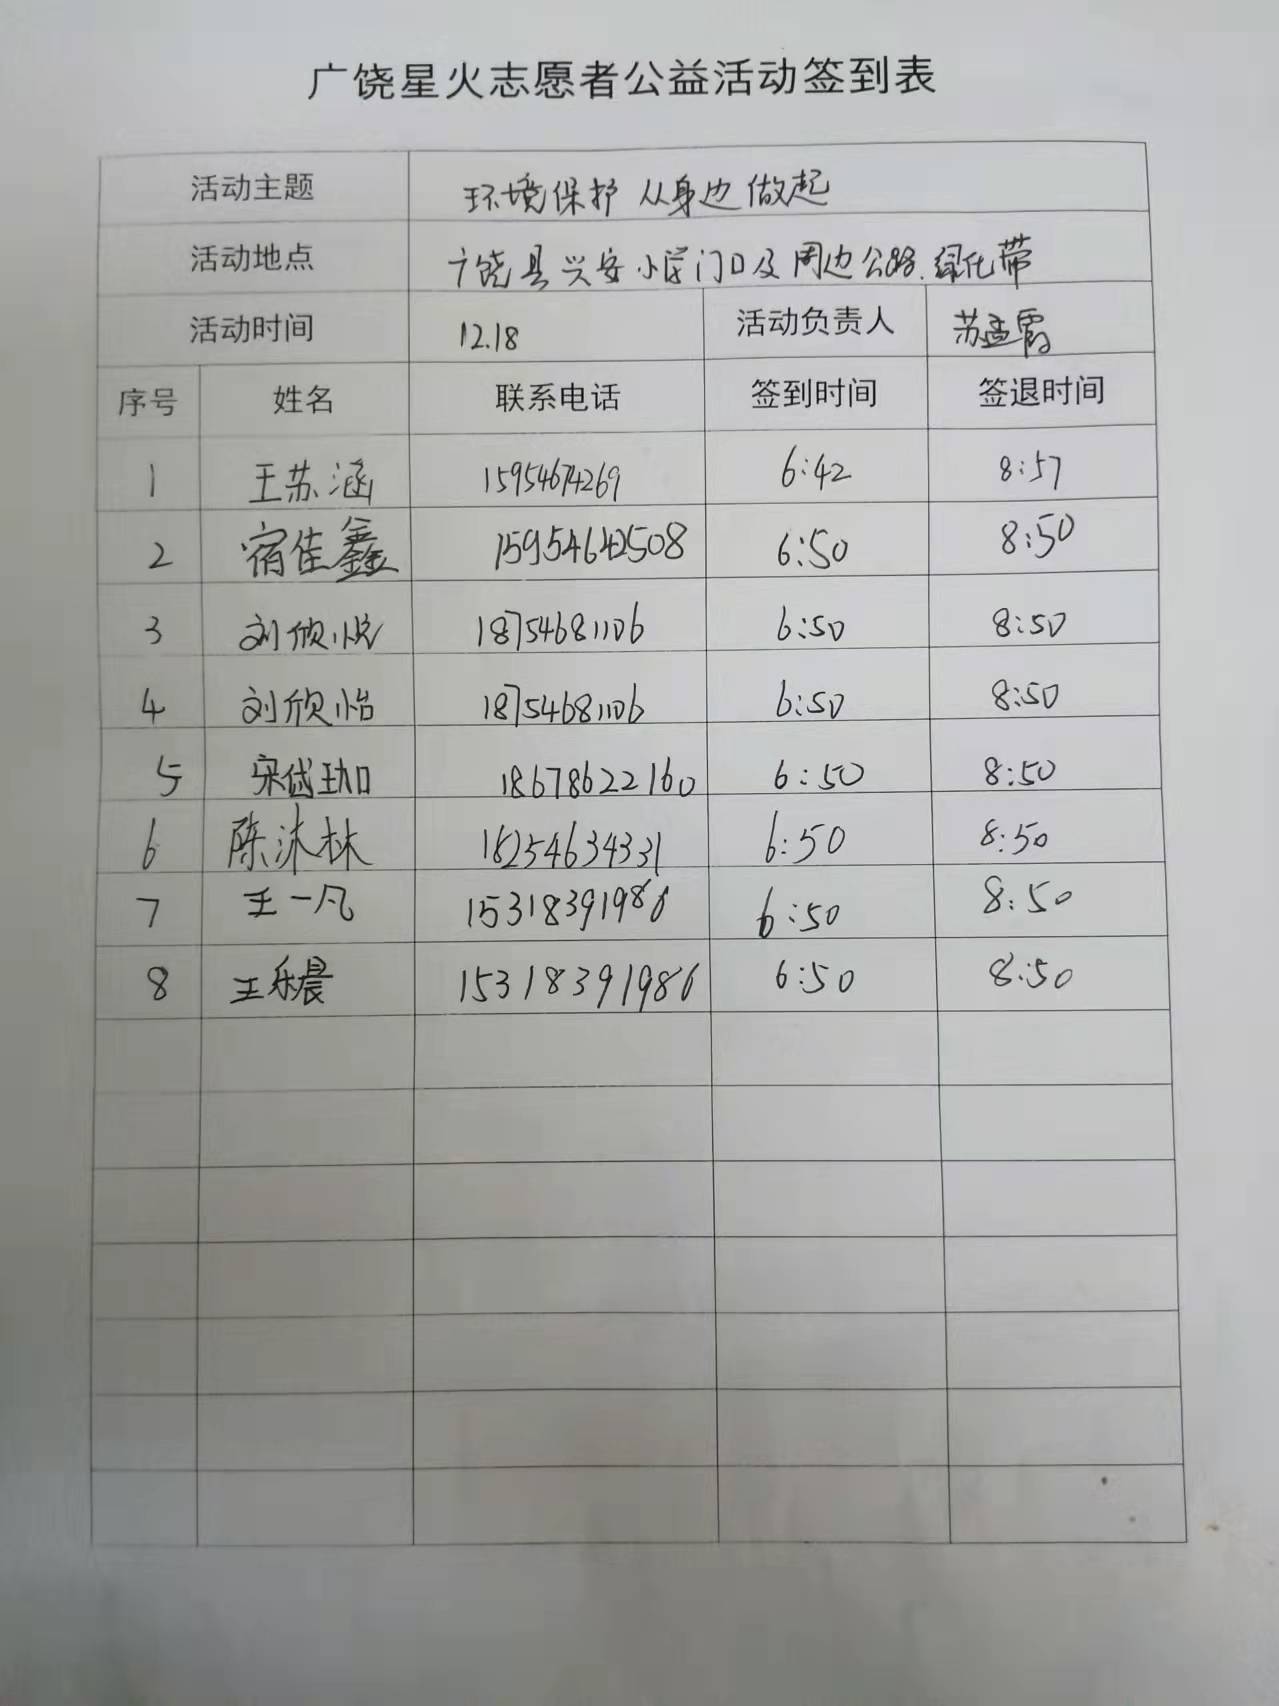 广饶星火志愿者公益活动签到表
活动主题 环境保护 从身边做起
活动地点 广饶县兴安小学门口及周边公路.绿化带
活动时间 12.18 活动负责人 苏孟霞
序号 姓名 联系电话 签到时间 签退时间
1 王苏涵 15954674269 6:42 8:57
2 宿佳鑫 15954642508 6:50 8:50
3 刘欣悦 18754681106 6:50 8:50
4 刘欣怡 18754681106 6:50 8:50
5 宋岱珈 18678622160 6:50 8:50
6 陈沐林 18254634331 6:50 8:50
7 王一凡 15318391986 6:50 8:50
8 王乐晨 15318391986 6:50 8:50